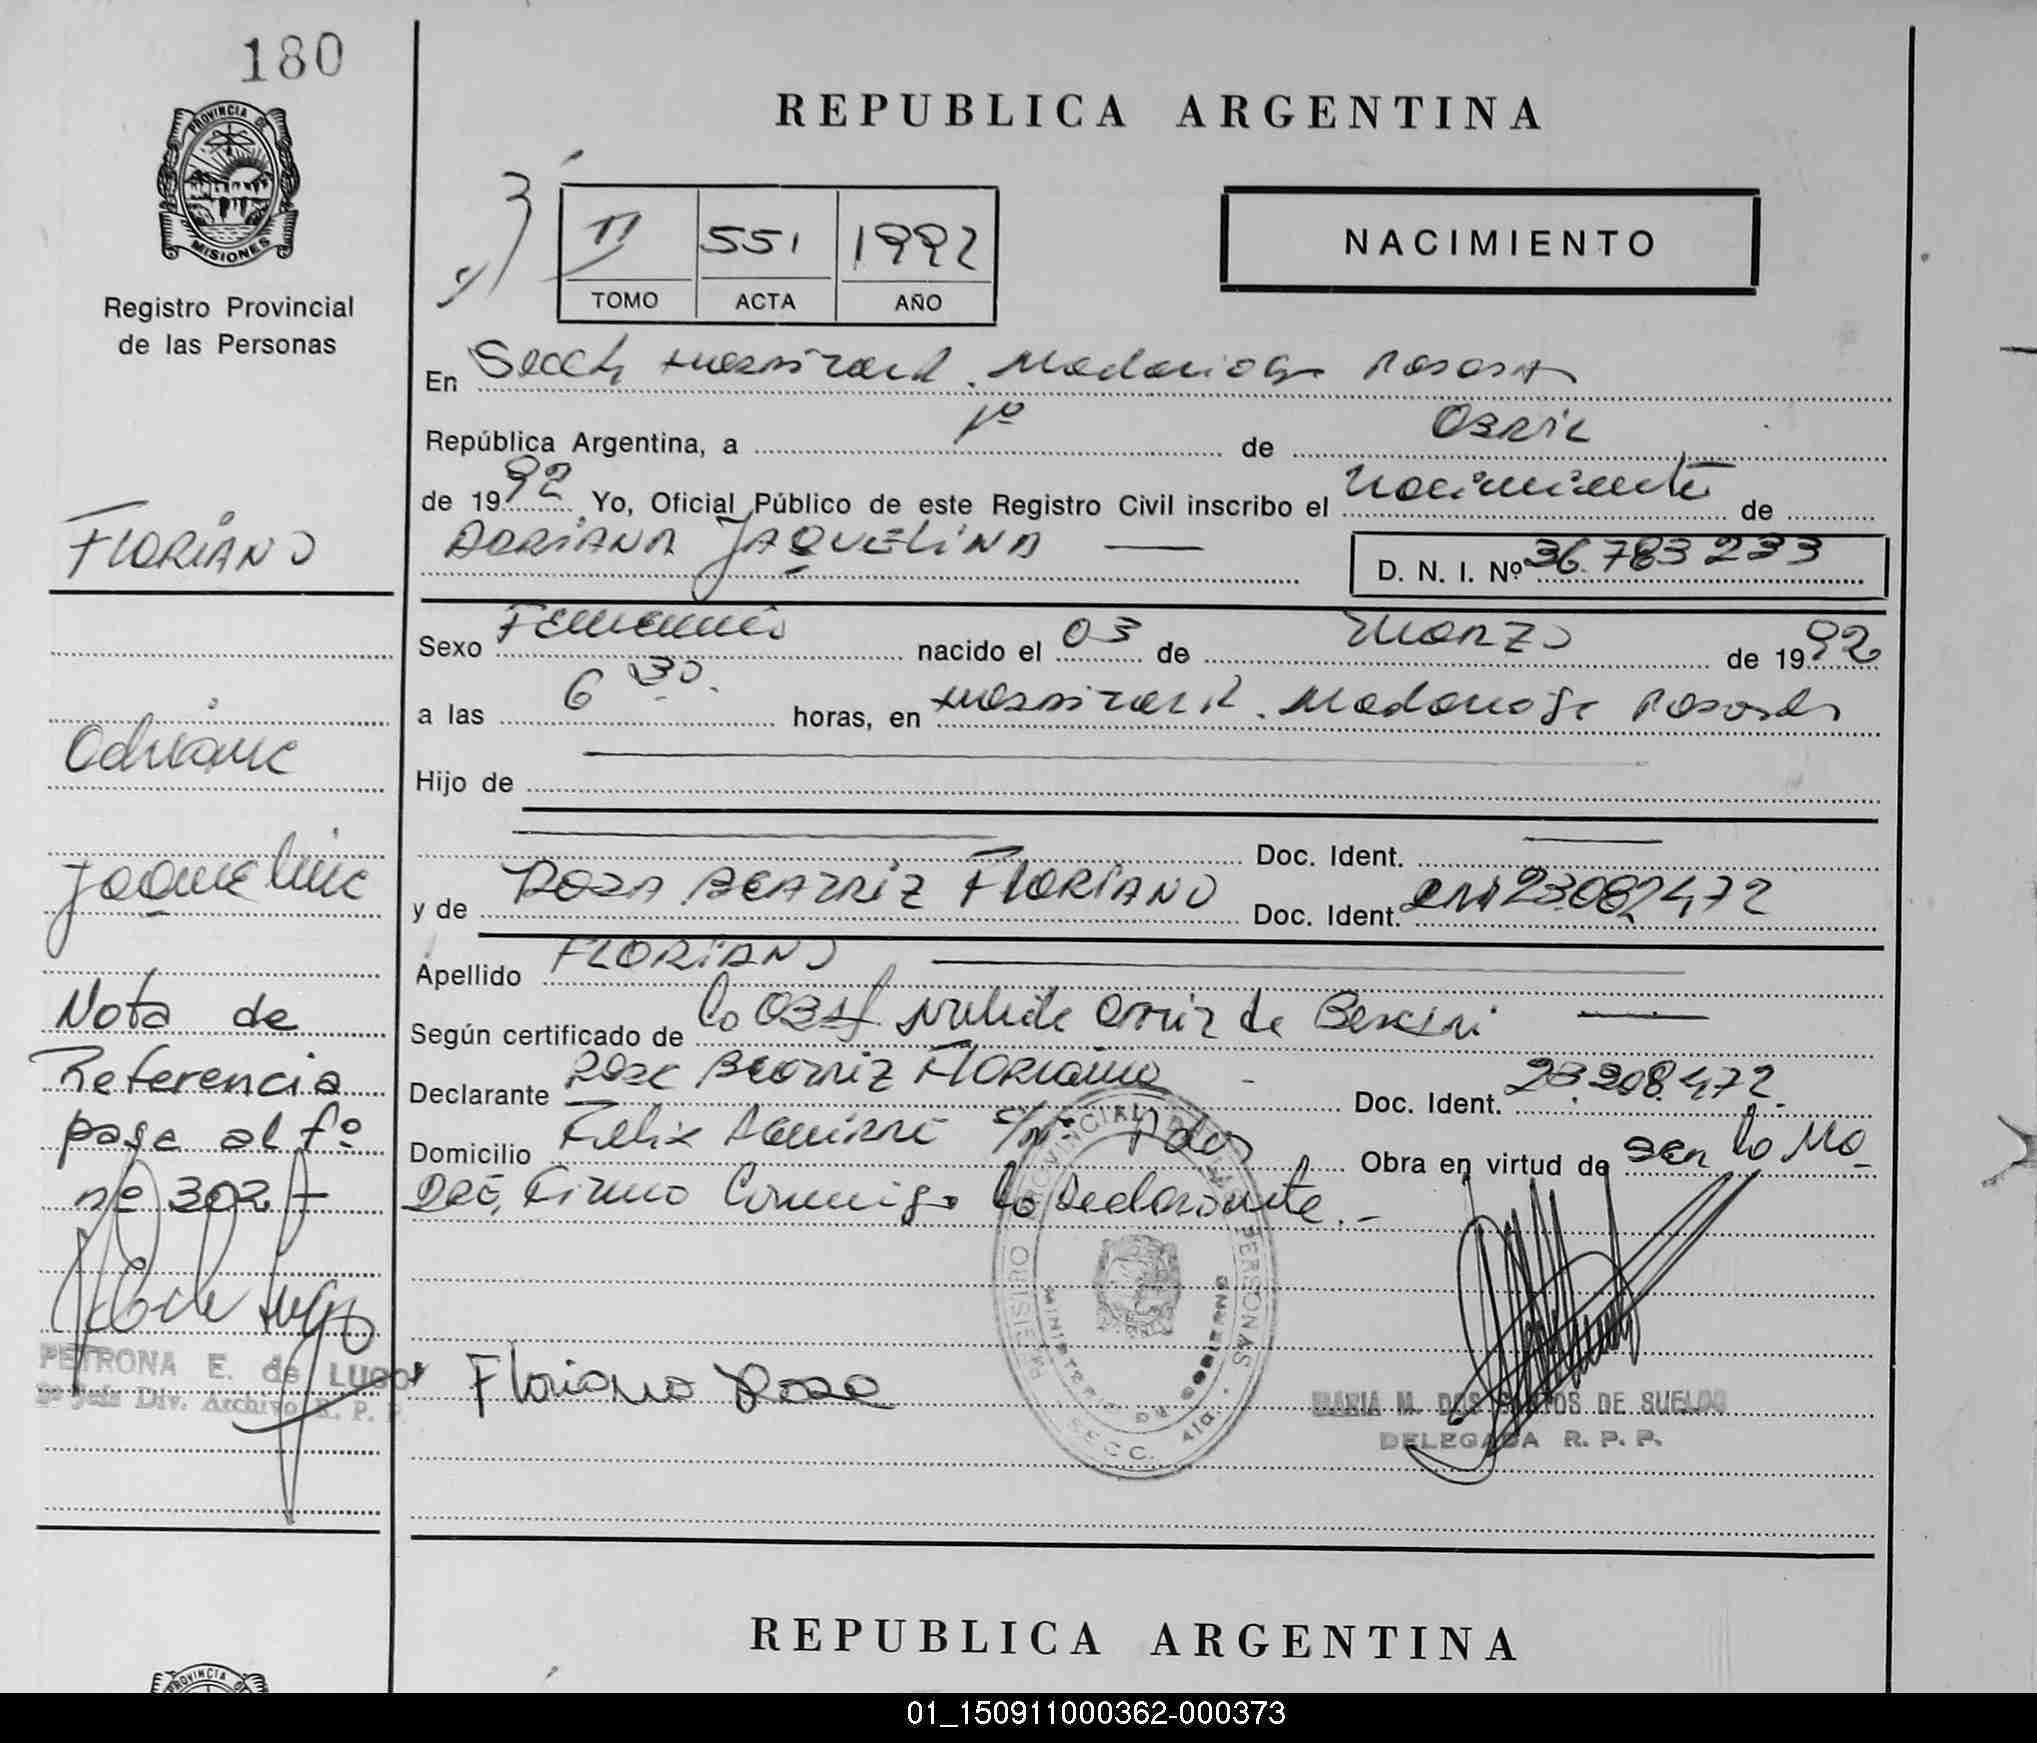 180
PROVINCIA DE
MISIONES
Registro Provincial
de las Personas
REPUBLICA ARGENTINA
II 551 1992
TOMO ACTA AÑO
NACIMIENTO
En Hospital R. Madariaga Posadas
República Argentina, a 1º de Abril
de 1992 Yo, Oficial Público de este Registro Civil inscribo el Nacimiento de
ADRIANA JAQUELINA
D. N. I. Nº 36.783.233
Sexo Femenino nacido el 03 de Marzo de 1992
a las 6 30 horas, en Hospital R. Madariaga Posadas
Hijo de
Doc. Ident.
y de ROSA BEATRIZ FLORIANO Doc. Ident. DNI 23.082.472
Apellido FLORIANO
Según certificado de la Obst Ortiz de
Declarante Rosa Beatriz Floriano Doc. Ident. 23.208.472.
Domicilio Felix Aguirre s/nº Pdas Obra en virtud de ser la Ma-
Dre, Firma Conmigo la Declarante.-
FLORIANO
Adriana
Jaquelina
Nota de
Referencia
pasa al fº
nº 302
PETRONA E. de LUGO
Jefe Div. Archivo R. P. P.
Floriano Rosa
REGISTRO PROVINCIAL DE LAS PERSONAS
MINISTERIO DE GOBIERNO
SECC. 4ta.
MARIA M. DOS SANTOS DE SUELDO
DELEGADA R. P. P.
REPUBLICA ARGENTINA
PROVINCIA DE
01_150911000362-000373